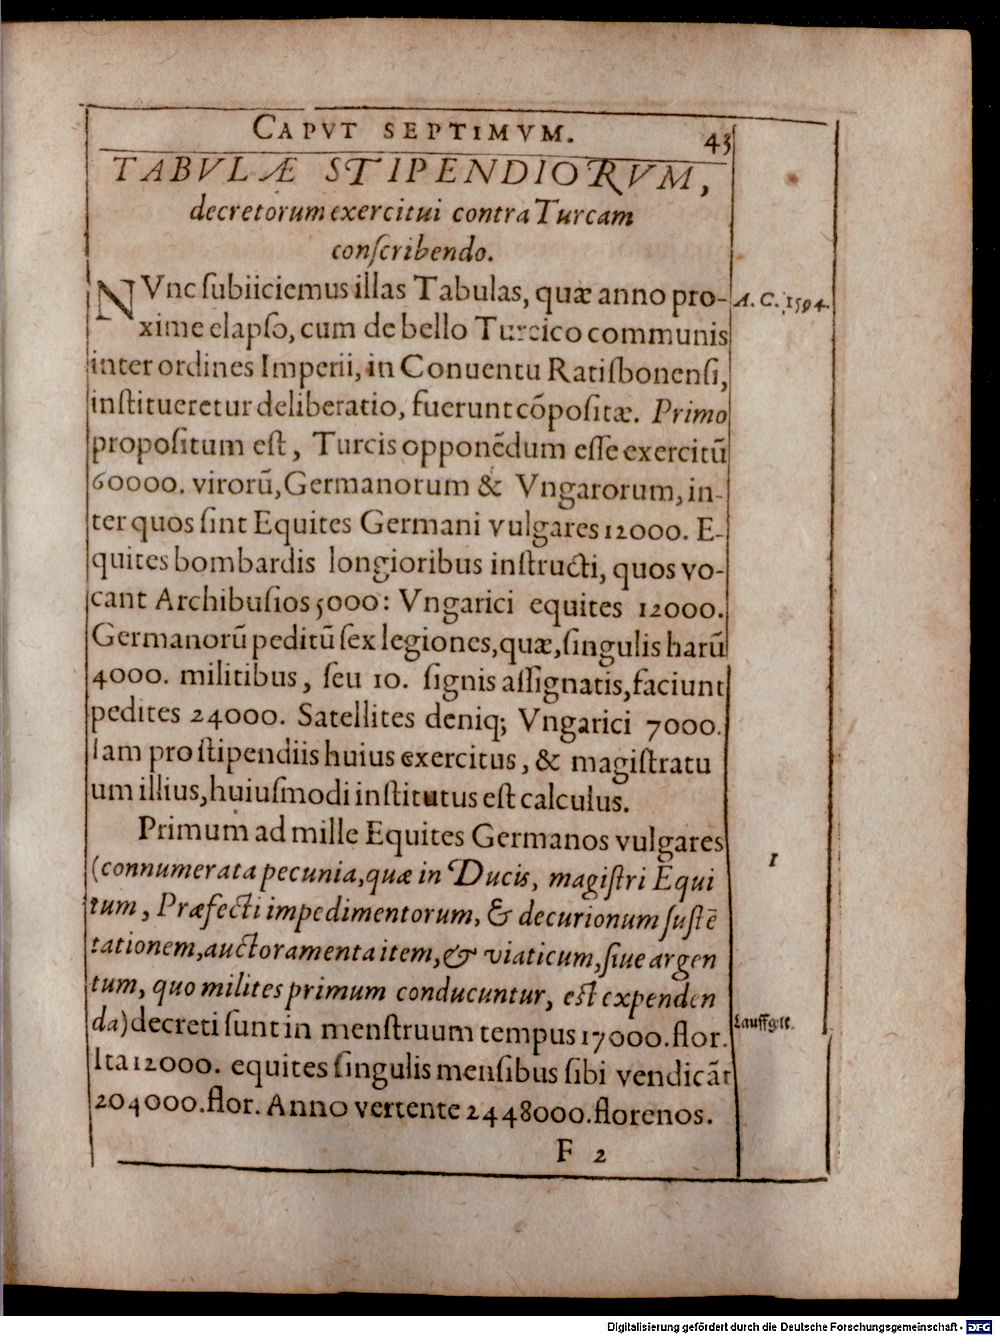 CAPVT SEPTIMVM. 43
TABVLÆ STIPENDIORVM,
decretorum exercitui contra Turcam
conſcribendo.
NVnc ſubiiciemus illas Tabulas, quæ anno pro- A. C. 1594.
xime elapſo, cum de bello Turcico communis
inter ordines Imperii, in Conuentu Ratiſbonenſi,
inſtitueretur deliberatio, fuerunt cõpoſitæ. Primo
propoſitum eſt, Turcis opponẽdum eſſe exercitũ
60000. virorũ, Germanorum & Vngarorum, in-
ter quos ſint Equites Germani vulgares 12000. E-
quites bombardis longioribus inſtructi, quos vo-
cant Archibuſios 5000: Vngarici equites 12000.
Germanorũ peditũ ſex legiones, quæ, ſingulis harũ
4000. militibus, ſeu 10. ſignis aſſignatis, faciunt
pedites 24000. Satellites deniq; Vngarici 7000.
Iam pro ſtipendiis huius exercitus, & magiſtratu
um illius, huiuſmodi inſtitutus eſt calculus.
Primum ad mille Equites Germanos vulgares
(connumerata pecunia, quæ in Ducis, magiſtri Equi I
tum, Præfecti impedimentorum, & decurionum ſuſtē
tationem, auctoramenta item, & viaticum, ſiue argen
tum, quo milites primum conducuntur, eſt expenden
da) decreti ſunt in menſtruum tempus 17000. flor. Lauffgelt.
Ita 12000. equites ſingulis menſibus ſibi vendicãt
204000. flor. Anno vertente 2448000. florenos.
F 2
Digitalisierung gefördert durch die Deutsche Forschungsgemeinschaft - DFG